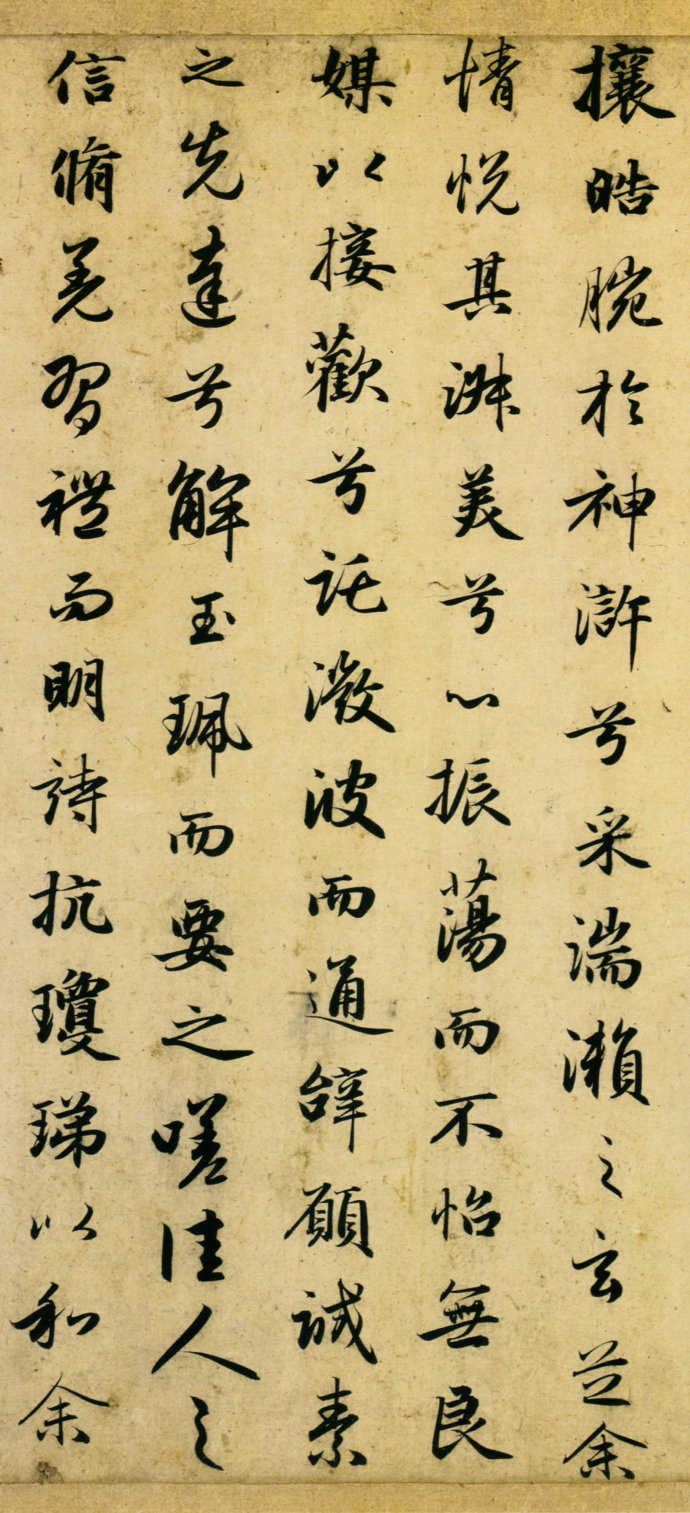 攘皓腕於神滸兮采湍瀨之玄芝余
情悅其淑美兮心振蕩而不怡無良
媒以接歡兮託微波而通辭願誠素
之先達兮解玉珮而要之嗟佳人之
信脩羌習禮而明詩抗瓊珶以和余